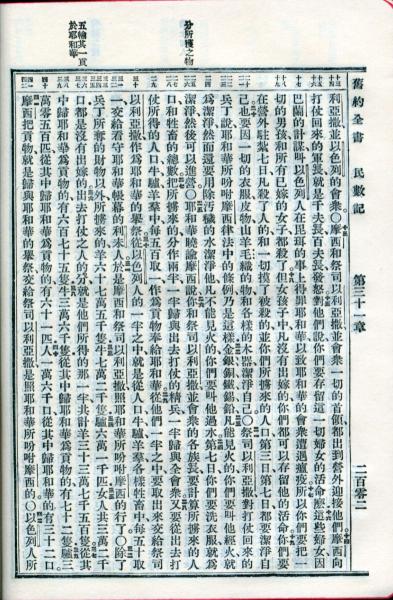 舊約全書　民數記　第三十一章　二百零二
分所獲之物
五輸其一貢
於耶和華
利亞撒並以色列的會衆〇摩西和祭司以利亞撒並會衆一切的首領都出到營外迎接他們摩西向
打仗回來的軍長就是千夫長百夫長發怒對他們說你們要存留這一切婦女的活命麼這些婦女因
巴蘭的計謀叫以色列人在毘珥的事上得罪耶和華以致耶和華的會衆遭遇瘟疫所以你們要把一
切的男孩和所有已嫁的女子都殺了但女孩子中凡沒有出嫁的你們都可以存留他的活命你們要
在營外駐紮七日凡殺了人的和一切摸了被殺的並你們所擄來的人口第三日第七日都要潔淨自
己也要因一切的衣服皮物山羊毛織的物和各樣的木器潔淨自己〇祭司以利亞撒對打仗回來的
兵丁說耶和華所吩咐摩西律法中的條例乃是這樣金銀銅鐵錫鉛凡能見火的你們要叫他經火就
爲潔淨然而還要用除汚穢的水潔淨他凡不能見火的你們要叫他過水第七日你們要洗衣服就爲
潔淨然後可以進營〇耶和華曉諭摩西說你和祭司以利亞撒並會衆的各族長要計算所擄來的人
口和牲畜的總數把所擄來的分作兩半一半歸與出去打仗的精兵一半歸與全會衆又要從出去打
仗所得的人口牛驢羊羣中每五百取一作爲貢物奉給耶和華從他們一半之中要取出來交給祭司
以利亞撒作爲耶和華的舉祭從以色列人的一半之中就是從人口牛驢羊羣各樣牲畜中每五十取
一交給看守耶和華帳幕的利未人於是摩西和祭司以利亞撒照耶和華所吩咐摩西的行了〇除了
兵丁所奪的財物以外所擄來的羊六十七萬五千隻牛七萬二千隻驢六萬一千匹女人共三萬二千
口都是沒有出嫁的出去打仗之人的分就是他們所得的那一半共計羊三十三萬七千五百隻從其
中歸耶和華爲貢物的有六百七十五隻牛三萬六千隻從其中歸耶和華爲貢物的有七十二隻驢三
萬零五百匹從其中歸耶和華爲貢物的有六十一匹人一萬六千口從其中歸耶和華的有三十二口
摩西把貢物就是歸與耶和華的舉祭交給祭司以利亞撒是照耶和華所吩咐摩西的〇以色列人所